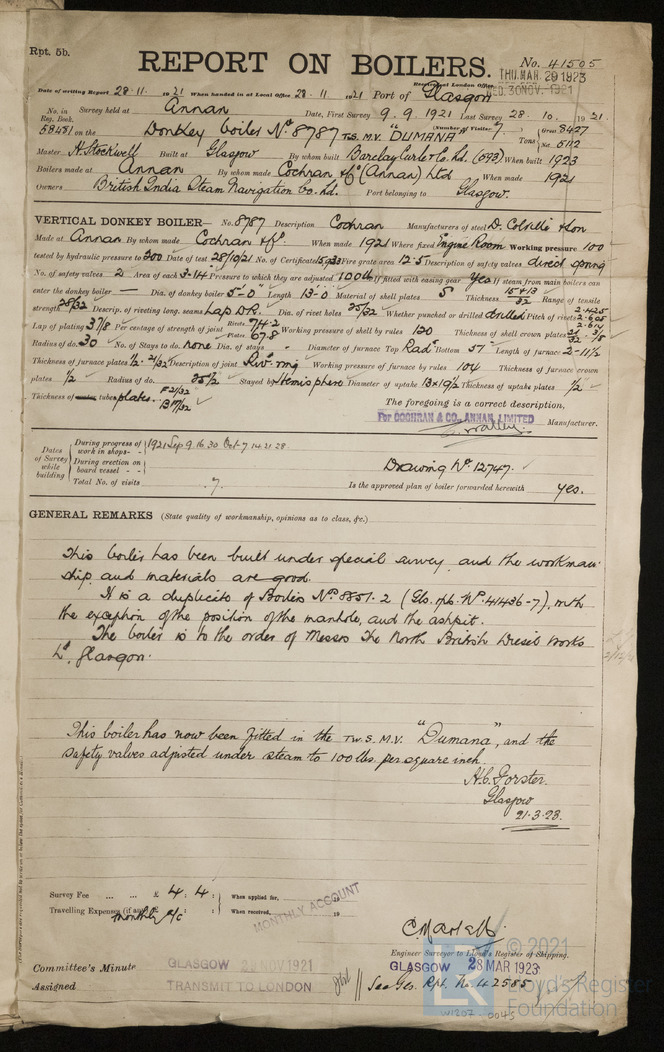 Rpt. 5b.
REPORT ON BOILERS.
No. 41505
THU. MAR. 29 1923
Received at London Office WED. 30 NOV. 1921
Date of writing Report 28.11. 1921 When handed in at Local Office 28.11 1921 Port of Glasgow
No. in Survey held at Annan Date, First Survey 9.9.1921 Last Survey 28.10.1921
Reg. Book.
58481 on the Donkey boiler No. 8787 T.S. M.V. "DUMANA" (Number of Visits 7) Tons Gross 8427
Net 5112
Master H. Stockwell Built at Glasgow By whom built Barclay Curle & Co. Ltd. (593) When built 1923
Boilers made at Annan By whom made Cochran & Co. (Annan) Ltd When made 1921
Owners British India Steam Navigation Co. Ld. Port belonging to Glasgow.
VERTICAL DONKEY BOILER— No. 8787 Description Cochran Manufacturers of steel D. Colville & Son
Made at Annan By whom made Cochran & Co. When made 1921 Where fixed Engine Room Working pressure 100
tested by hydraulic pressure to 200 Date of test 28/10/21 No. of Certificate 15933 Fire grate area 12.5 Description of safety valves direct spring
No. of safety valves 2 Area of each 3.14 Pressure to which they are adjusted 100 lb If fitted with easing gear Yes If steam from main boilers can
enter the donkey boiler — Dia. of donkey boiler 5'-0" Length 13'-0 Material of shell plates S Thickness 15 & 13/32 Range of tensile
strength 28/32 Descrip. of riveting long. seams Lap D.R. Dia. of rivet holes 25/32 Whether punched or drilled drilled Pitch of rivets 2.425
2.625
2.614
Lap of plating 3 7/8 Per centage of strength of joint Rivets 74.2
Plates 67.8 Working pressure of shell by rules 120 Thickness of shell crown plates
Radius of do. 30 No. of Stays to do. none Dia. of stays - Diameter of furnace Top Rads Bottom 57 Length of furnace 2-11 1/2
Thickness of furnace plates 1/2 · 21/32 Description of joint Riv. ring Working pressure of furnace by rules 104 Thickness of furnace crown
plates 1/2 Radius of do. 25 1/2 Stayed by Hemisphere Diameter of uptake 13 x 19/2 Thickness of uptake plates 1/2
Thickness of water tubes plates. F 21/32
B 17/32
The foregoing is a correct description,
For COCHRAN & CO., ANNAN, LIMITED
Manufacturer.
Dates of Survey while building
During progress of work in shops - - 1921 Sep 9. 16. 30 Oct. 7. 14. 21. 28.
During erection on board vessel - - -
Total No. of visits 7.
Drawing No. 12747.
Is the approved plan of boiler forwarded herewith yes.
GENERAL REMARKS (State quality of workmanship, opinions as to class, &c.)
This boiler has been built under special survey and the workman-
ship and materials are good.
It is a duplicate of Boilers No. 8551.2 (Gls. rpt. No. 41436-7), with
the exception of the position of the manhole, and the ashpit.
The boiler is to the order of Messrs The North British Diesel Works
Ld. Glasgow.
This boiler has now been fitted in the Tw. S. M.V. "Dumana", and the
safety valves adjusted under steam to 100 lbs. per square inch.
H.C. Forster.
Glasgow
21.3.23.
Survey Fee ... ... £ 4 : 4 : When applied for, 19
Travelling Expenses (if any) £ monthly a/c When received, 19
MONTHLY ACCOUNT
Engineer Surveyor to Lloyd's Register of Shipping.
Committee's Minute GLASGOW 29 NOV 1921 GLASGOW 28 MAR 1923
Assigned TRANSMIT TO LONDON See Gls. Rpt. No. 42585
© 2021
Lloyd's Register
Foundation
W1202-0045